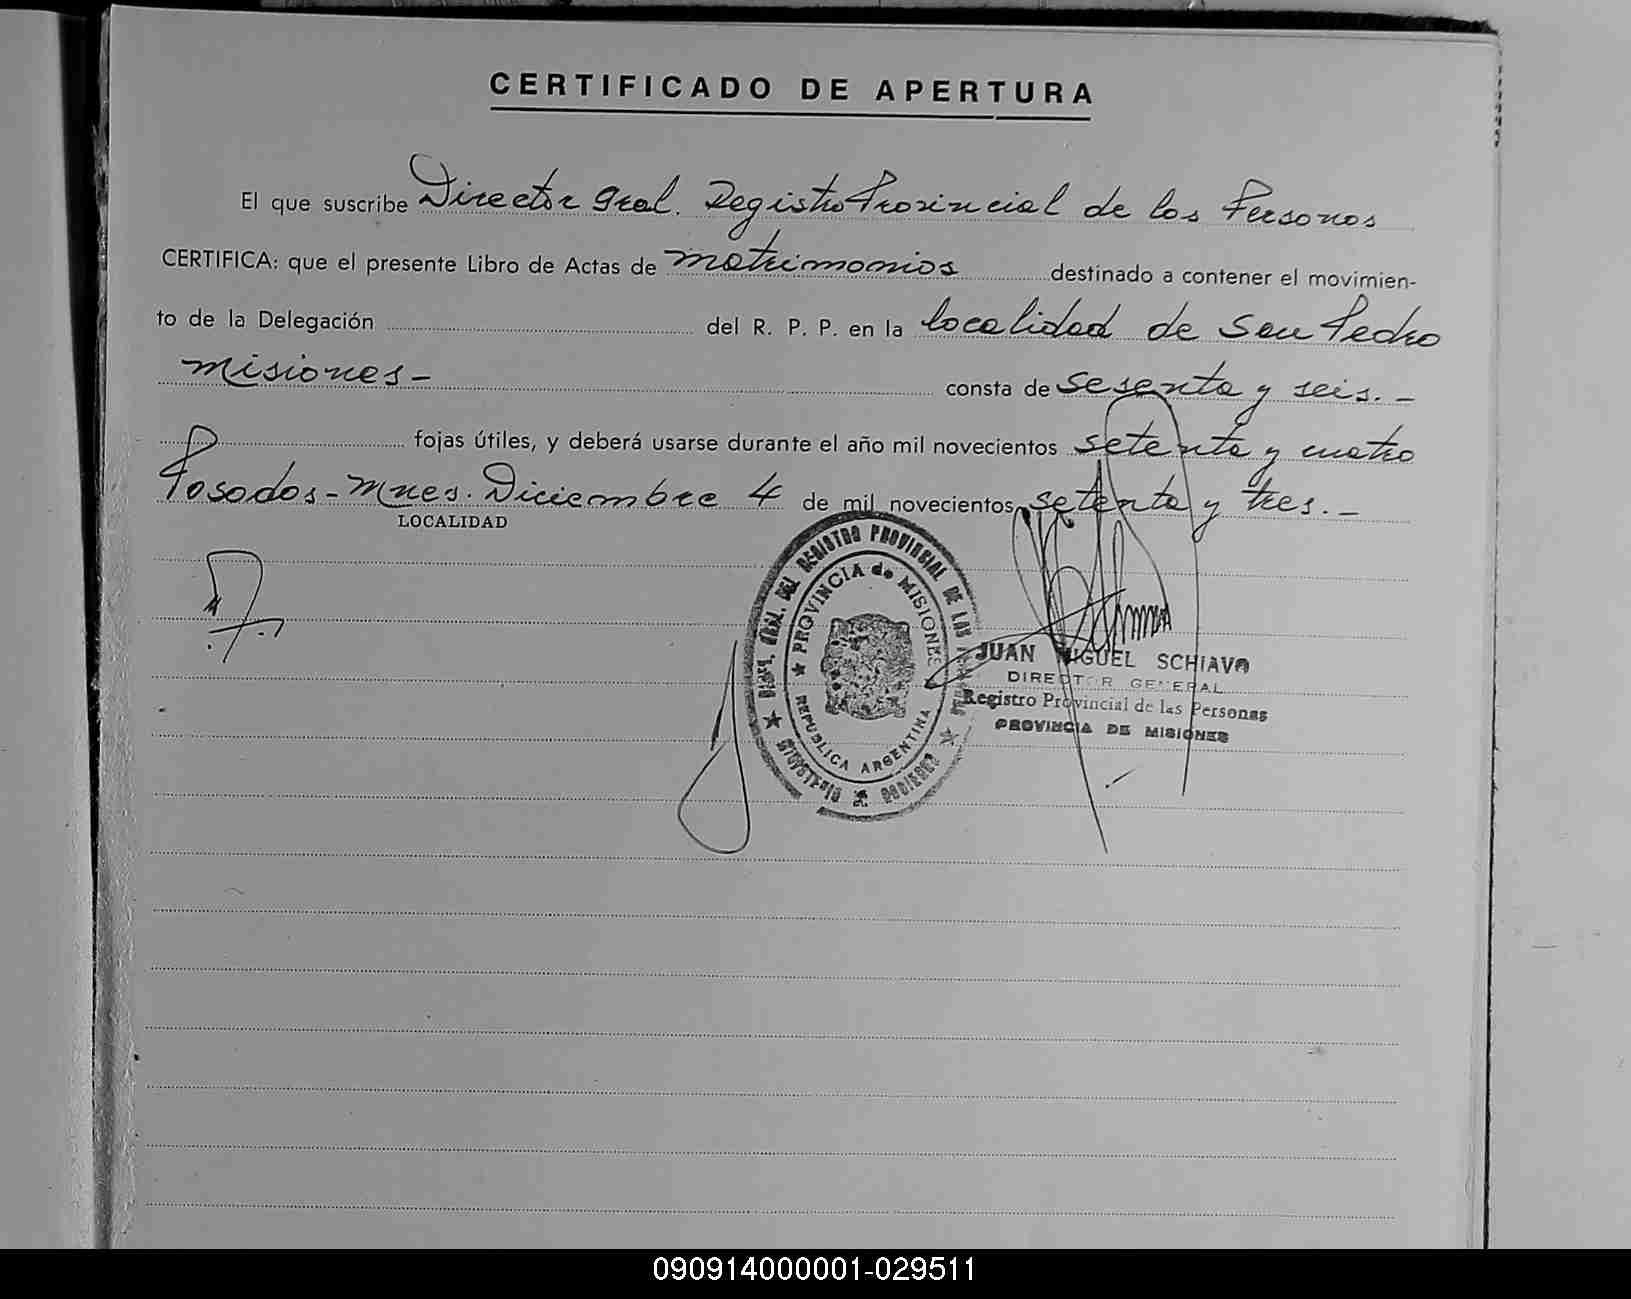 CERTIFICADO DE APERTURA
El que suscribe Director Gral. Registro Provincial de las Personas
CERTIFICA: que el presente Libro de Actas de matrimonios destinado a contener el movimien-
to de la Delegación del R. P. P. en la localidad de San Pedro
Misiones- consta de sesenta y seis.-
fojas útiles, y deberá usarse durante el año mil novecientos setenta y cuatro
Posadas-Mnes. Diciembre 4 de mil novecientos setenta y tres.-
LOCALIDAD
DIR. GRAL. DEL REGISTRO PROVINCIAL DE LAS PERSONAS
PROVINCIA de MISIONES
REPUBLICA ARGENTINA
MINISTERIO DE GOBIERNO
JUAN MIGUEL SCHIAVO
DIRECTOR GENERAL
Registro Provincial de las Personas
PROVINCIA DE MISIONES
090914000001-029511